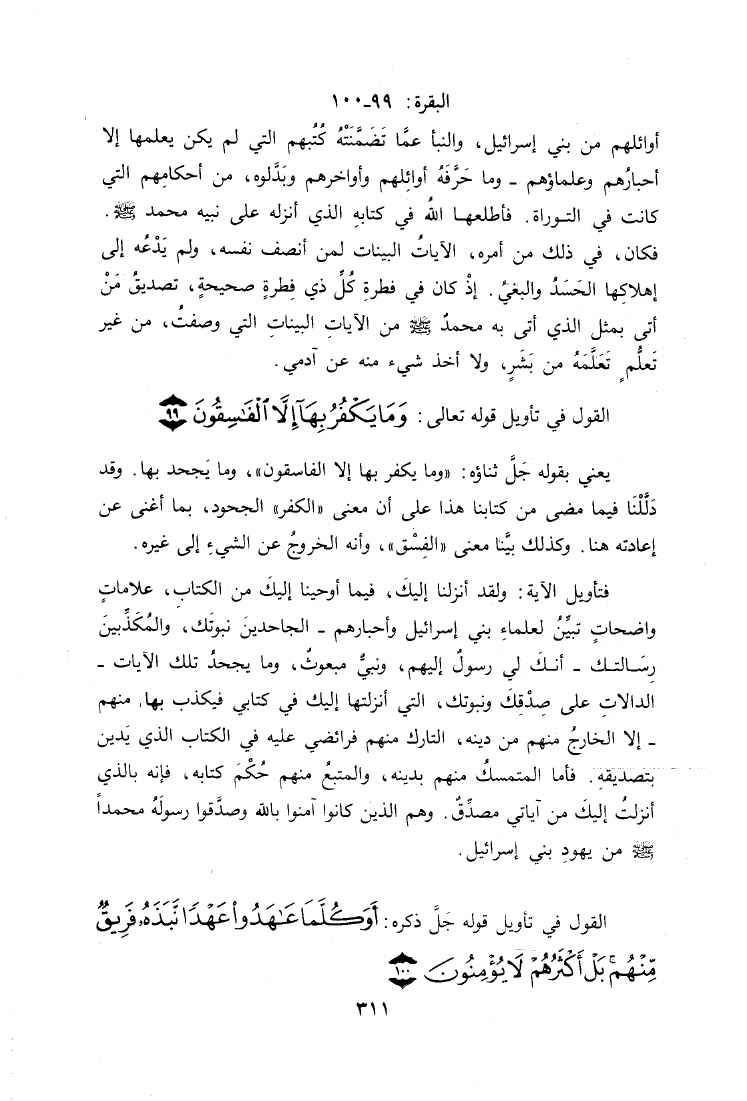 البقرة: ٩٩-١٠٠
أوائلهم من بني إسرائيل، والنبأ عمَّا تَضَمَّنَتْهُ كُتُبهم التي لم يكن يعلمها إلا
أحبارُهم وعلماؤهم - وما حَرَّفَهُ أوائِلهم وأواخرهم وبَدَّلوه، من أحكامهم التي
كانت في التوراة. فأطلعها اللهُ في كتابهِ الذي أنزله على نبيه محمد ﷺ.
فكان، في ذلك من أمره، الآياتُ البينات لمن أنصف نفسه، ولم يَدْعُه إلى
إهلاكِها الحَسَدُ والبغيُ. إذْ كان في فطرةِ كُلِّ ذي فِطرةٍ صحيحةٍ، تصديقُ مَنْ
أتى بمثل الذي أتى به محمدٌ ﷺ من الآياتِ البيناتِ التي وصفتُ، من غير
تَعلُّمٍ تَعَلَّمَهُ من بَشَرٍ، ولا أخذ شيء منه عن آدمي.
القول في تأويل قوله تعالى: وَمَا يَكْفُرُ بِهَآ إِلَّا ٱلْفَٰسِقُونَ ٩٩
يعني بقوله جَلَّ ثناؤه: «وما يكفر بها إلا الفاسقون»، وما يَجحد بها. وقد
دَلَّلْنَا فيما مضى من كتابنا هذا على أن معنى «الكفر» الجحود، بما أغنى عن
إعادته هنا. وكذلك بيَّنا معنى «الفِسْق»، وأنه الخروجُ عن الشيءِ إلى غيره.
فتأويل الآية: ولقد أنزلنا إليكَ، فيما أوحينا إليكَ من الكتاب، علاماتٍ
واضحاتٍ تبيِّنُ لعلماءِ بني إسرائيل وأحبارهم - الجاحدينَ نبوتَك، والمُكَذِّبينَ
رِسَالتك - أنكَ لي رسولٌ إليهم، ونبيٌّ مبعوثٌ، وما يجحدُ تلك الآيات -
الدالاتِ على صِدْقِكَ ونبوتك، التي أنزلتها إليك في كتابي فيكذب بها، منهم
- إلا الخارجُ منهم من دينه، التارك منهم فرائضي عليه في الكتاب الذي يَدين
بتصديقهِ. فأما المتمسكُ منهم بدينه، والمتبعُ منهم حُكْمَ كتابه، فإنه بالذي
أنزلتُ إليكَ من آياتي مصدِّقٌ. وهم الذين كانوا آمنوا بالله وصدَّقوا رسولَهُ محمداً
ﷺ من يهودِ بني إسرائيل.
القول في تأويل قوله جَلَّ ذكره: أَوَكُلَّمَا عَٰهَدُوا۟ عَهْدًا نَّبَذَهُۥ فَرِيقٌ
مِّنْهُم ۚ بَلْ أَكْثَرُهُمْ لَا يُؤْمِنُونَ ١٠٠
٣١١